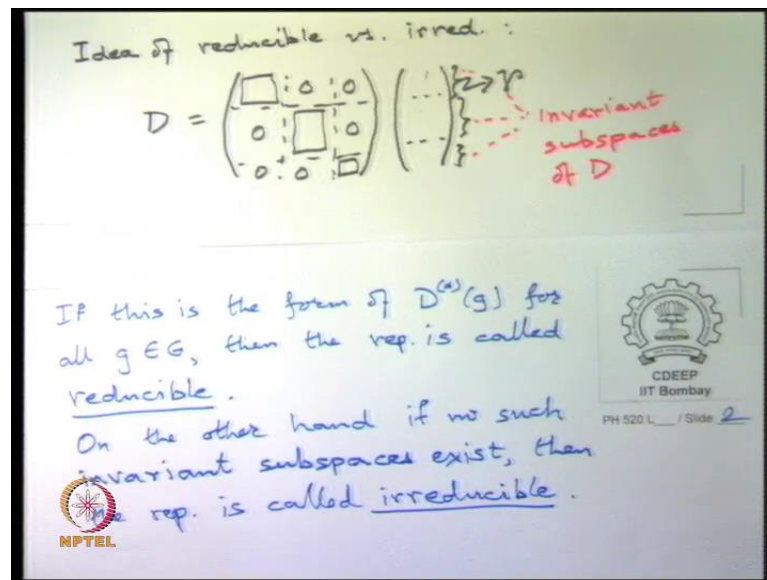 Idea of reducible vs. irred. :
D =
0 0
0 0
0 0
r
Invariant
subspaces
of D
If this is the form of D^(α)(g) for
all g ∈ G, then the rep. is called
reducible.
On the other hand if no such
invariant subspaces exist, then
the rep. is called irreducible.
CDEEP
IIT Bombay
PH 520 L___ / Slide 2
NPTEL